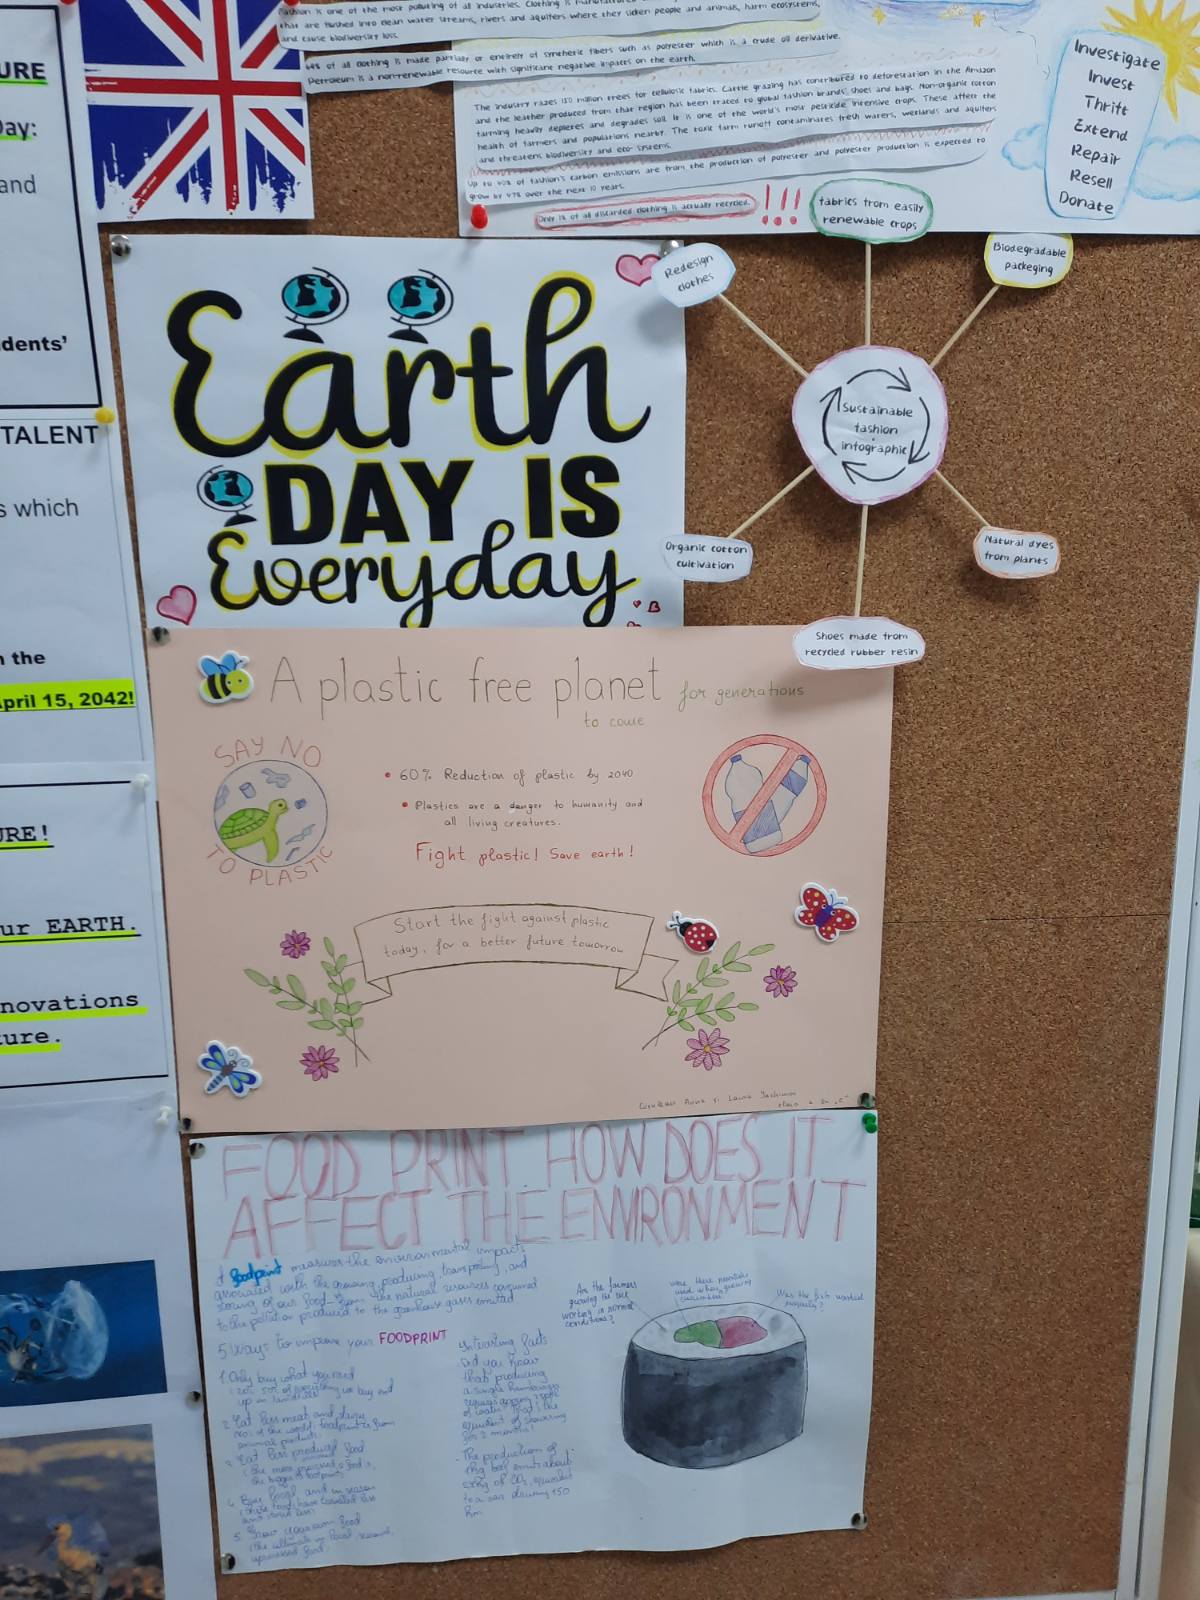 URE
Day:
and
dents'
TALENT
s which
n the
April 15, 2042!
URE!
ur EARTH.
novations
ture.
Fashion is one of the most polluting of all industries. Clothing is
that are flushed into clean water streams, rivers and aquifers where they sicken people and animals, harm ecosystems,
and cause biodiversity loss.
64% of all clothing is made partially or entirely of synthetic fibers such as polyester which is a crude oil derivative.
Petroleum is a non-renewable resource with significant negative impacts on the earth.
The industry razes 150 million trees for cellulosic fabrics. Cattle grazing has contributed to deforestation in the Amazon
and the leather produced from that region has been traced to global fashion brands' shoes and bags. Non-organic cotton
farming heavily depletes and degrades soil. It is one of the world's most pesticide intensive crops. These affect the
health of farmers and populations nearby. The toxic farm runoff contaminates fresh waters, wetlands and aquifers
and threatens biodiversity and eco-systems.
Up to 40% of fashion's carbon emissions are from the production of polyester and polyester production is expected to
grow by 47% over the next 10 years.
Only 1% of all discarded clothing is actually recycled. !!!
Investigate
Invest
Thrift
Extend
Repair
Resell
Donate
Redesign
clothes
fabrics from easily
renewable crops
Biodegradable
packeging
Sustainable
fashion
infographic
Organic cotton
cultivation
Natural dyes
from plants
Shoes made from
recycled rubber resin
Earth
DAY IS
Everyday
A plastic free planet for generations
to come
SAY NO
TO PLASTIC
• 60% Reduction of plastic by 2040
• Plastics are a danger to humanity and
all living creatures.
Fight plastic! Save earth!
Start the fight against plastic
today, for a better future tomorrow
FOOD PRINT HOW DOES IT
AFFECT THE ENVIRONMENT
A foodprint measures the environmental impacts
associated with the growing, producing, transporting, and
storing of our food - from the natural resources consumed
to the pollution produced to the greenhouse gases emitted
5 Ways to improve your FOODPRINT
1. Only buy what you need
up in landfills
2. Eat less meat and dairy
animal products
3. Eat less produced food
the bigger its footprint
4. Buy local and in season
5. Grow your own food
Interesting facts
Did you know
that producing
a single hamburger
of water? That's the
equivalent of showering
for 2 months!
The production of
1 kg beef emits about
of CO2, equivalent
to a car driving 150
km
Are the farmers
growing the rice
working in normal
conditions?
were there pesticides
used when growing
cucumbers?
Was the fish
properly?